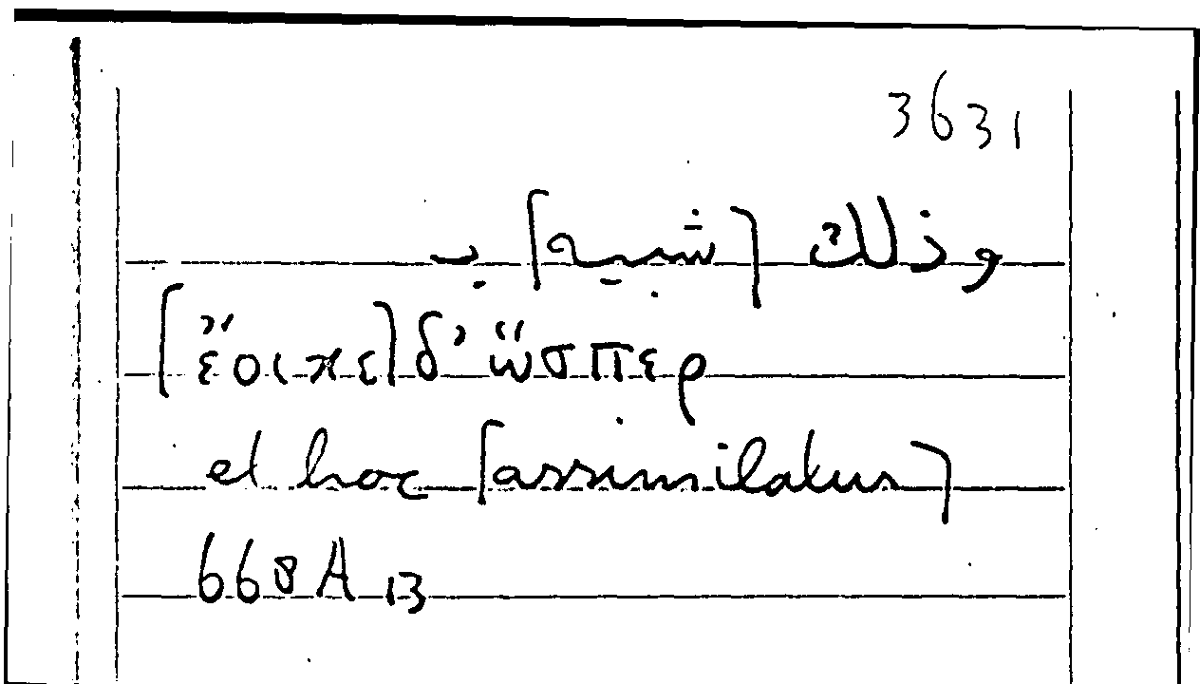 3631
وذلك [شبيه] بـ
[ἔοικε] δ' ὥσπερ
et hoc [assimilatur]
668A13